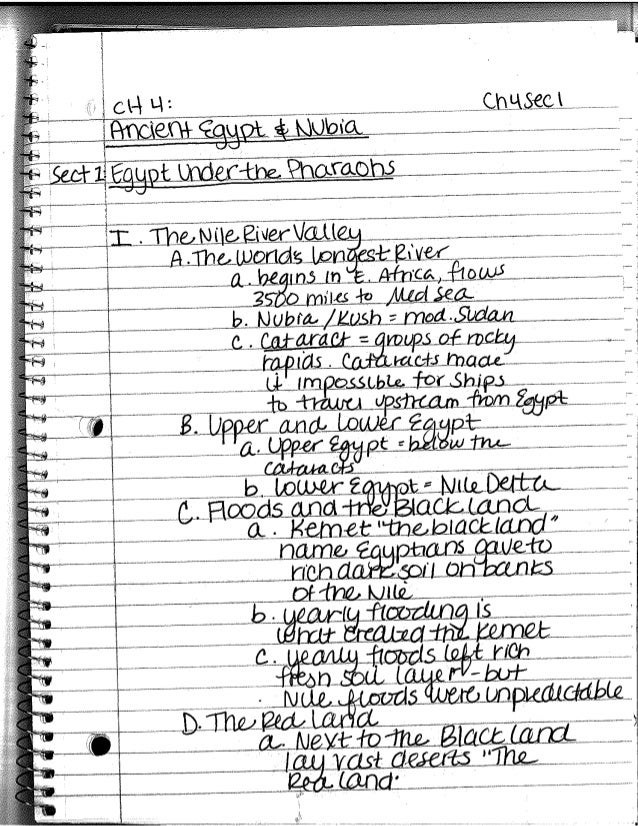 CH 4: Ch4Sec1
Ancient Egypt & Nubia
Sect 1 Egypt Under the Pharaohs
I. The Nile River Valley
A. The Worlds Longest River
a. begins in E. Africa, flows
3500 miles to Med Sea
b. Nubia / Kush = mod. Sudan
c. Cataract = groups of rocky
rapids. Cataracts made
it impossible for ships
to travel upstream from Egypt
B. Upper and Lower Egypt
a. Upper Egypt = below the
cataracts
b. lower Egypt = Nile Delta
C. Floods and the Black land
a. Kemet "the black land"
name Egyptians gave to
rich dark soil on banks
of the Nile
b. yearly flooding is
what created the Kemet
c. yearly floods left rich
fresh soil layer - but
Nile floods were unpredictable
D. The Red land
a. Next to the Black land
lay vast deserts "The
Red land.